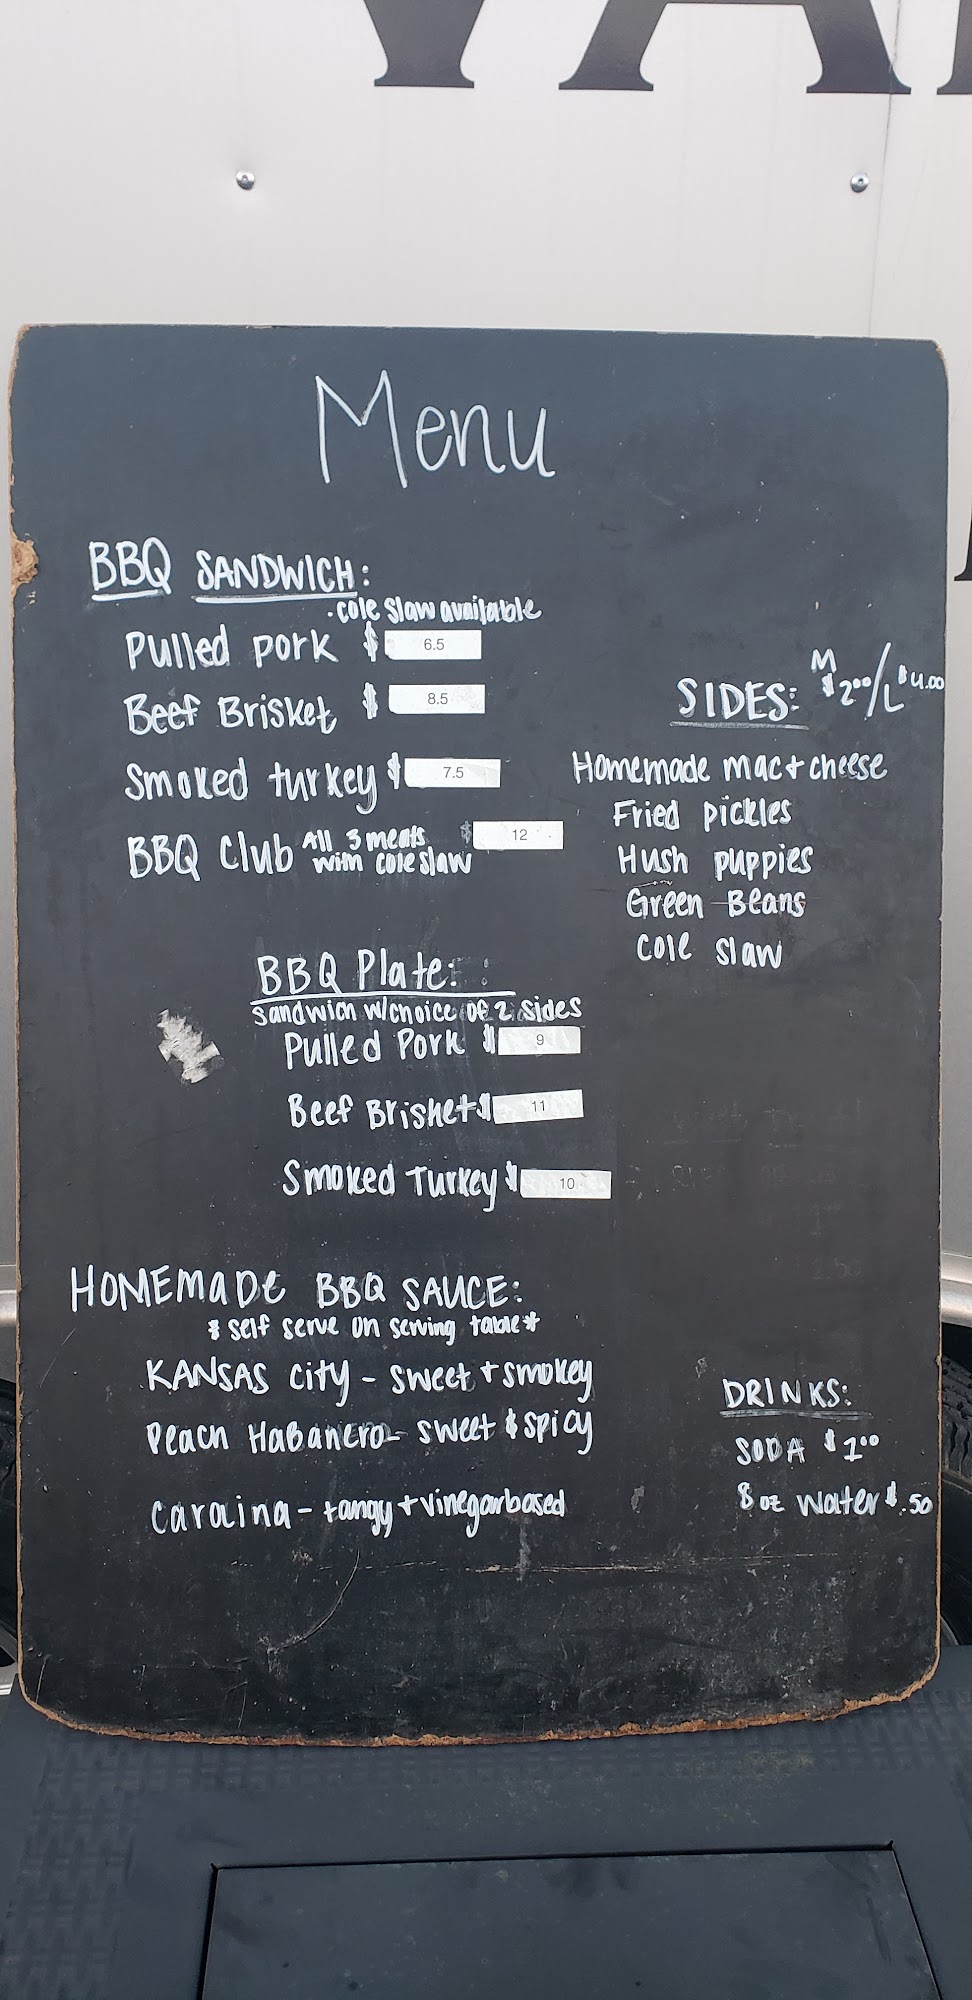 Menu
BBQ SANDWICH:
·cole slaw available
Pulled pork $ 6.5
Beef Brisket $ 8.5
Smoked turkey $ 7.5
BBQ Club All 3 meats with cole slaw $ 12
SIDES: M $2.00/L $4.00
Homemade mac + cheese
Fried pickles
Hush puppies
Green Beans
Cole slaw
BBQ Plate:
sandwich w/choice of 2 sides
Pulled Pork $ 9
Beef Brisket $ 11
Smoked Turkey $ 10
HOMEmaDe BBQ SAUCE:
* self serve on serving table *
KANSAS City - sweet + smokey
Peach HaBanero - sweet & spicy
Carolina - tangy + vinegar based
DRINKS:
SODA $1.00
8 oz water $.50